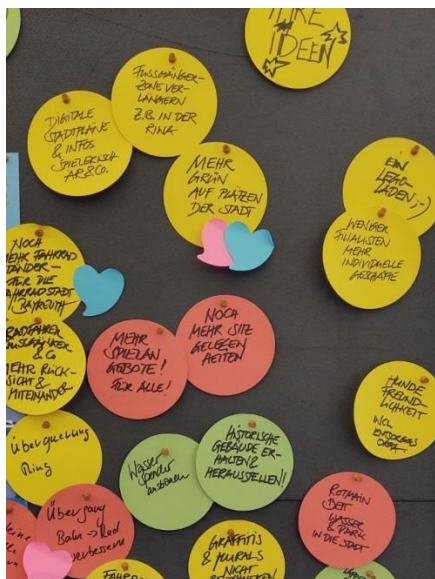 IHRE
IDEEN
FUSSGÄNGER-
ZONE VER-
LÄNGERN
Z.B. IN DER
RING
DIGITALE
STADTPLÄNE
& INFOS
SPIELERISCH
AR & CO.
MEHR
GRÜN
AUF PLÄTZEN
DER STADT
EIN
LEGO-
LADEN ;-)
WENIGER
FILIALISTEN
MEHR
INDIVIDUELLE
GESCHÄFTE
NOCH
MEHR FAHRRAD
STÄNDER -
FÜR DIE
FAHRRADSTADT
BAYREUTH
RADFAHRER
FUSSGÄNGER
& CO
MEHR RÜCK-
SICHT &
MITEINANDER
MEHR
SPIELAN
GEBOTE!
FÜR ALLE!
NOCH
MEHR SITZ
GELEGEN
HEITEN
HUNDE
FREUND
LICHKEIT
INCL.
Überquerung
Ring
Wasser
spender
HISTORISCHE
GEBÄUDE ER-
HALTEN &
HERAUSSTELLEN!
ROTMAIN
BETT
WASSER
& PARK
IN DIE STADT
Übergang
Bahn → Rad
verbessern
GRAFFITIS
& MURALS
NICHT